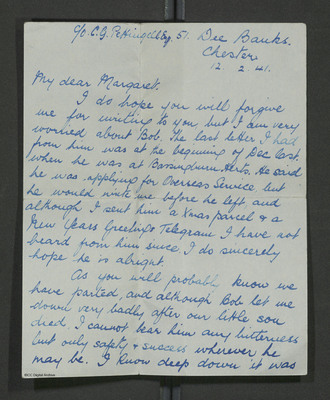 c/o C.G. Pettingell Esq. 51. Dee Banks.
Chester
12. 2. 41.
My dear Margaret.
I do hope you will forgive
me for writing to you but I am very
worried about Bob. The last letter I had
from him was at the beginning of Dec last.
when he was at Bassingbourn. Herts. He said
he was applying for Overseas Service but
he would write me before he left, and
although I sent him a Xmas parcel & a
New Years Greetings Telegram I have not
heard from him since I do sincerely
hope he is alright.
As you will probably know we
have parted, and although Bob let me
down very badly after our little son
died, I cannot bear him any bitterness
but only safety & success wherever he
may be. I know deep down it was
IBCC Digital Archive